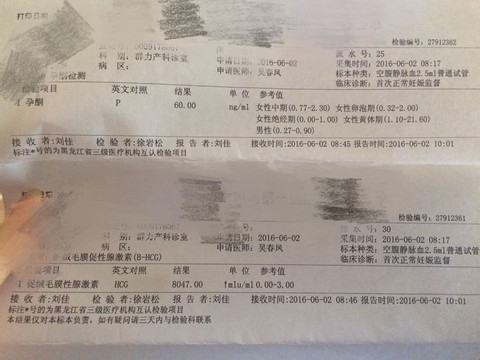 打印日期
检验编号: 27912362
流 水 号: 25
科 别: 群力产科诊室 2016-06-02 采集时间:2016-06-02 08:17
病 区: 申请医师: 吴春风 标本种类:空腹静脉血2.5ml普通试管
孕酮检测 临床诊断: 首次正常妊娠监督
检验项目 英文对照 结果 单 位 参考值
孕酮 P 60.00 ng/ml 女性中期(0.77-2.30) 女性卵泡期(0.32-2.00)
女性绝经期(0.00-1.00) 女性黄体期(1.10-21.60)
男性(0.27-0.90)
接 收 者:刘佳 检 验 者:徐岩松 报 告 者:刘佳 接收时间:2016-06-02 08:45 报告时间:2016-06-02 10:01
标注*号的为黑龙江省三级医疗机构互认检验项目
检验编号: 27912361
流 水 号: 30
科 别: 群力产科诊室 申请日期:2016-06-02 采集时间:2016-06-02 08:17
病 区: 申请医师: 吴春风 标本种类:空腹静脉血2.5ml普通试管
绒毛膜促性腺激素(B-HCG) 临床诊断: 首次正常妊娠监督
项目 英文对照 结果 单 位 参考值
1 促绒毛膜性腺激素 HCG 8047.00 ↑mlu/ml 0.00-3.00
接 收 者:刘佳 检 验 者:徐岩松 报 告 者:刘佳 接收时间:2016-06-02 08:46 报告时间:2016-06-02 10:01
标注*号的为黑龙江省三级医疗机构互认检验项目
本结果仅对本标本负责，如有疑问请三天内与检验科联系